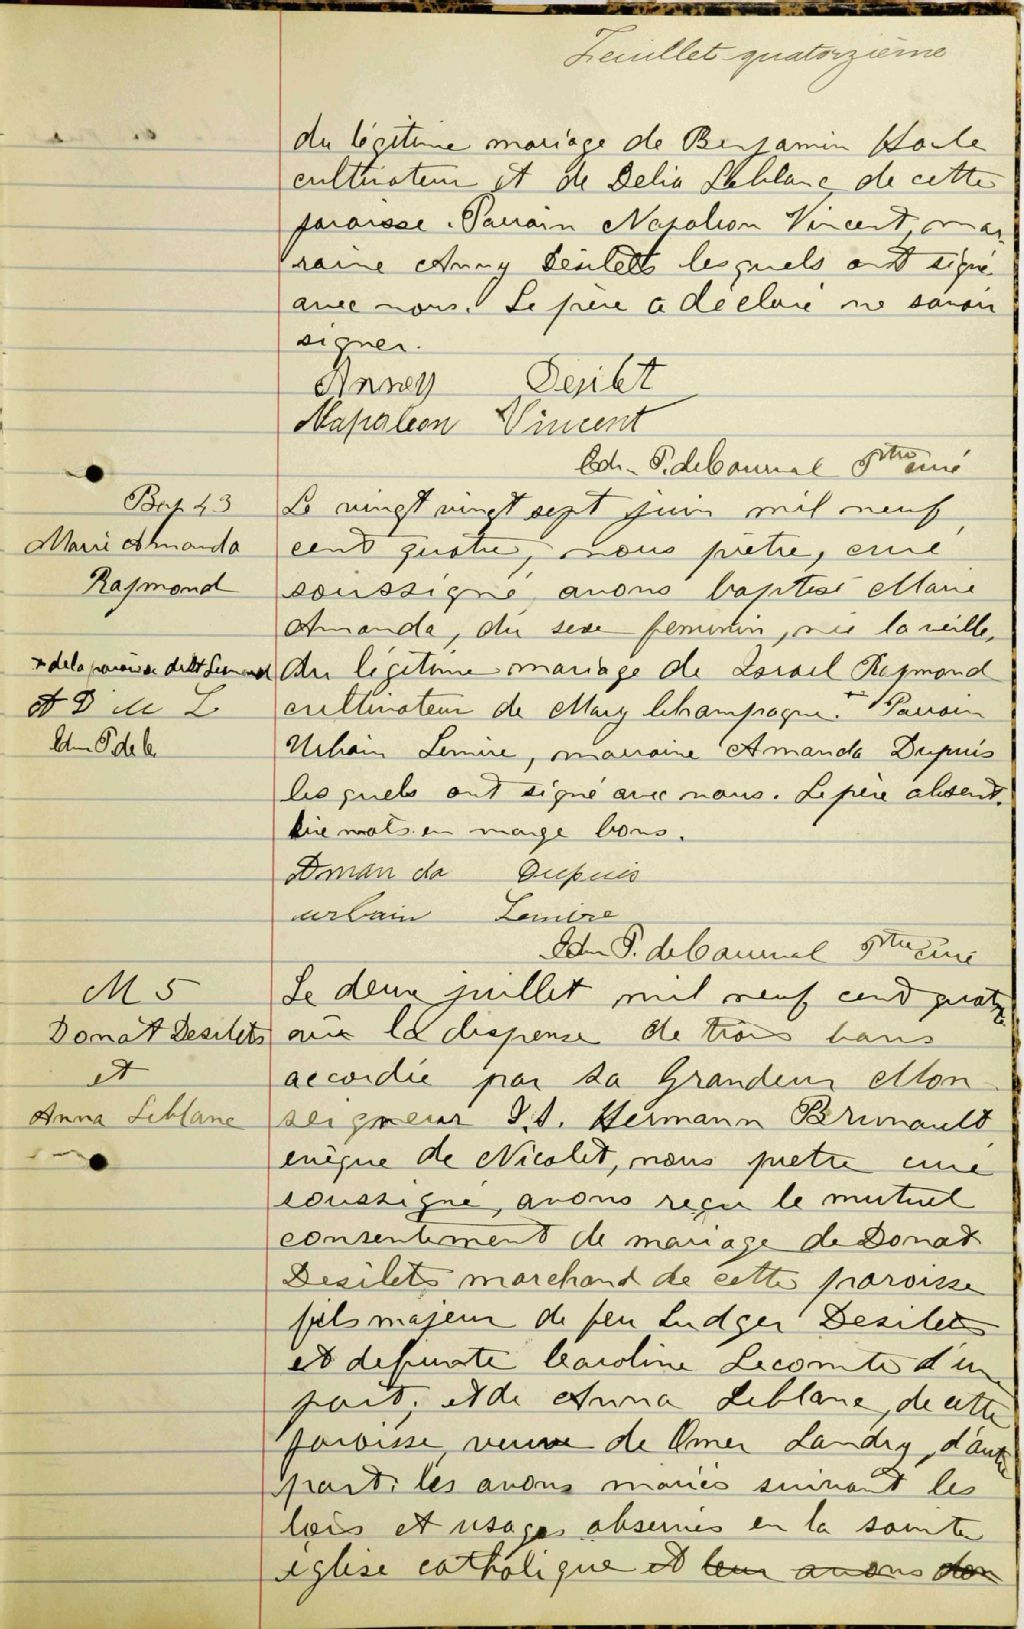 Feuillet quatorzième
du légitime mariage de Benjamin Houle
cultivateur et de Delia Leblanc de cette
paroisse. Parrain Napoleon Vincent, mar-
raine Anny Desilets lesquels ont signé
avec nous. Le père a déclaré ne savoir
signer.
Anney Desilet
Napoleon Vincent
Edm P. de Courval Ptre curé
Bap 43
Marie Amanda
Raymond
Le vingt vingt sept juin mil neuf
cent quatre, nous prêtre, curé
soussigné, avons baptisé Marie
Amanda, du sexe feminin, née la veille,
du légitime mariage de Israel Raymond
cultivateur de Mary Champagne. + Parrain
Urbain Lemire, marraine Amanda Dupuis
lesquels ont signé avec nous. Le père absent.
mots en marge bons.
+ de la paroisse de St
A D U L
Edm P de C
Amanda Dupuis
urbain Lemire
Edm P. de Courval Ptre curé
M 5
Donat Desilets
et
Anna Leblanc
Le deux juillet mil neuf cent quatre
vu la dispense de trois bans
accordée par Sa Grandeur Mon-
seigneur J.S. Hermann Brunault
evêque de Nicolet, nous pretre curé
soussigné, avons reçu le mutuel
consentement de mariage de Donat
Desilets marchand de cette paroisse
fils majeur de feu Ludger Desilets
et defunte Caroline Lecomte d'une
part; et de Anna Leblanc, de cette
paroisse, veuve de Omer Landry, d'autre
part: les avons mariés suivant les
lois et usages observés en la sainte
église catholique et leur avons don